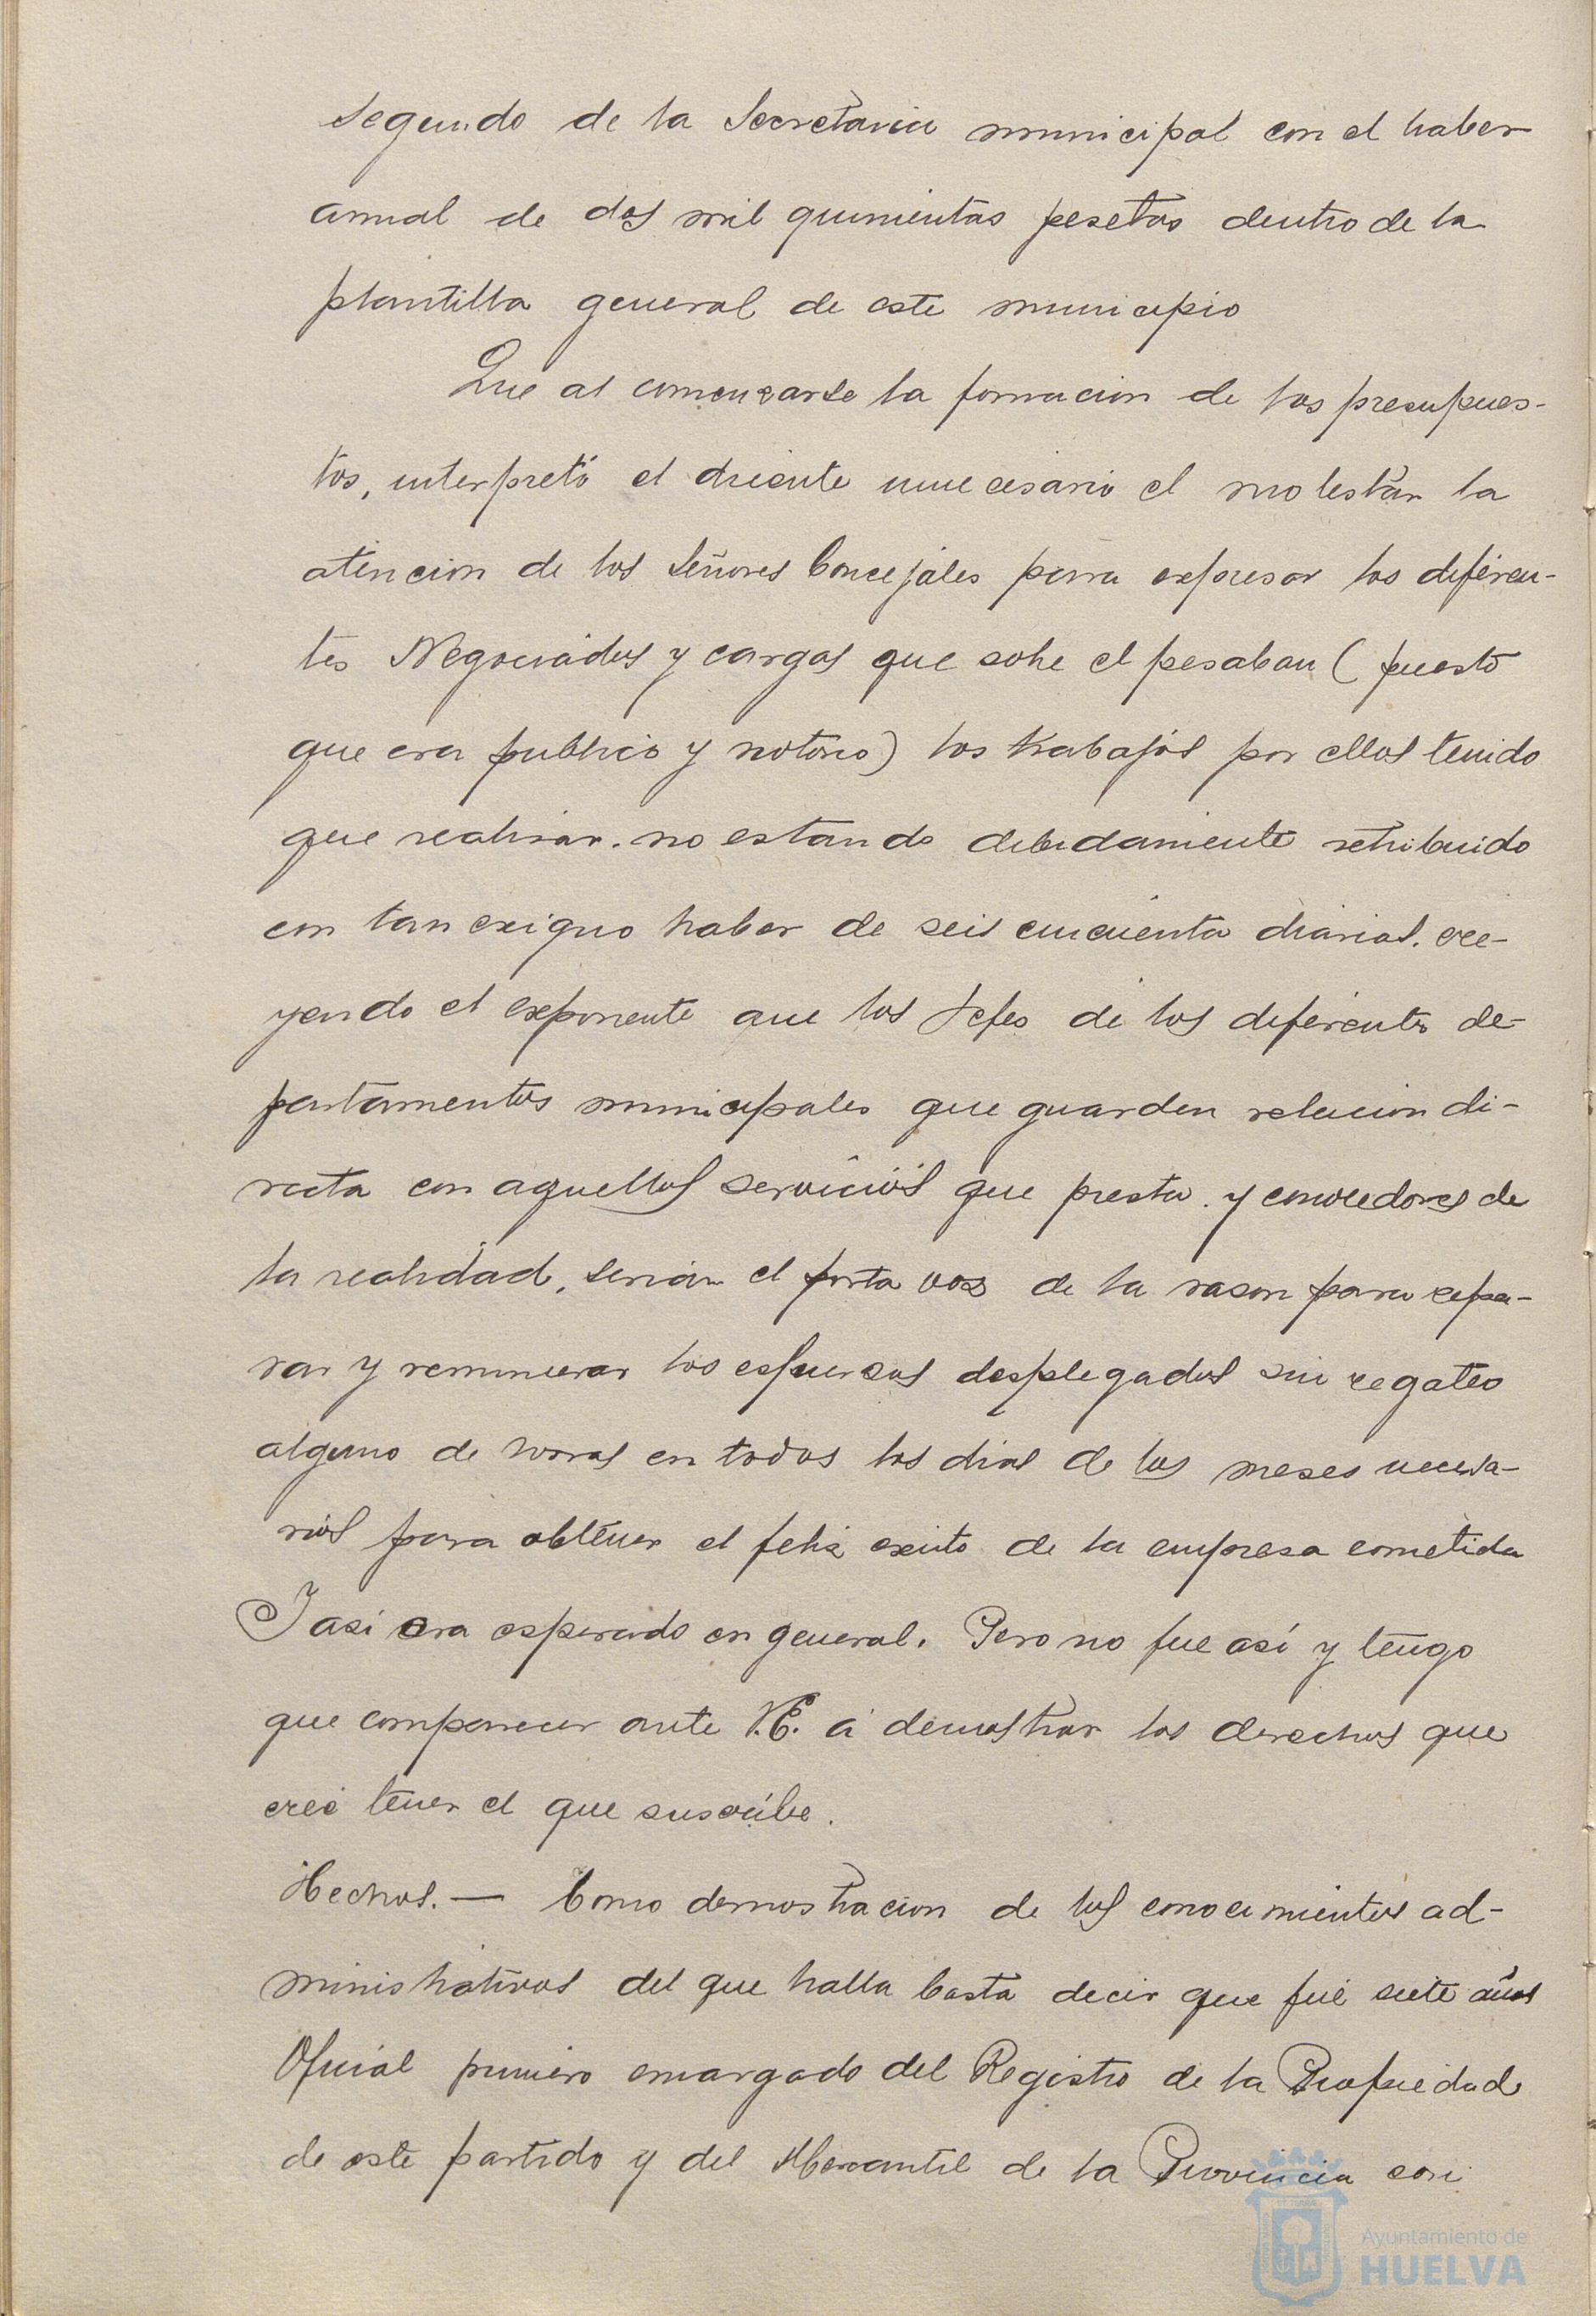 segundo de la Secretaria municipal con el haber
anual de dos mil quinientas pesetas dentro de la
plantilla general de este municipio
Que al comenzarse la formacion de los presupues-
tos, interpretó el diciente innecesario el molestar la
atencion de los Señores Concejales para expresar los diferen-
tes Negociados y cargos que sobre el pesaban (puesto
que era publico y notorio) los trabajos por ellos tenido
que realizar. no estando debidamente retribuido
con tan exiguo haber de seis cincuenta diarias. cre-
yendo el exponente que los Jefes de los diferentes de-
partamentos municipales que guarden relacion di-
recta con aquellos servicios que presta. y conocedores de
la realidad, serian el porta voz de la razon para repa-
rar y remunerar los esfuerzos desplegados sin regateo
alguno de horas en todos los dias de los meses necesa-
rios para obtener el feliz exito de la empresa cometida
Y asi era esperado en general. Pero no fue así y tengo
que comparecer ante V.E. á demostrar los derechos que
creé tener el que suscribe.
Hechos. — Como demostracion de los conocimientos ad-
ministrativos del que halla basta decir que fué siete años
Oficial primero encargado del Registro de la Propiedad
de este partido y del Mercantil de la Provincia con
Ayuntamiento de
HUELVA